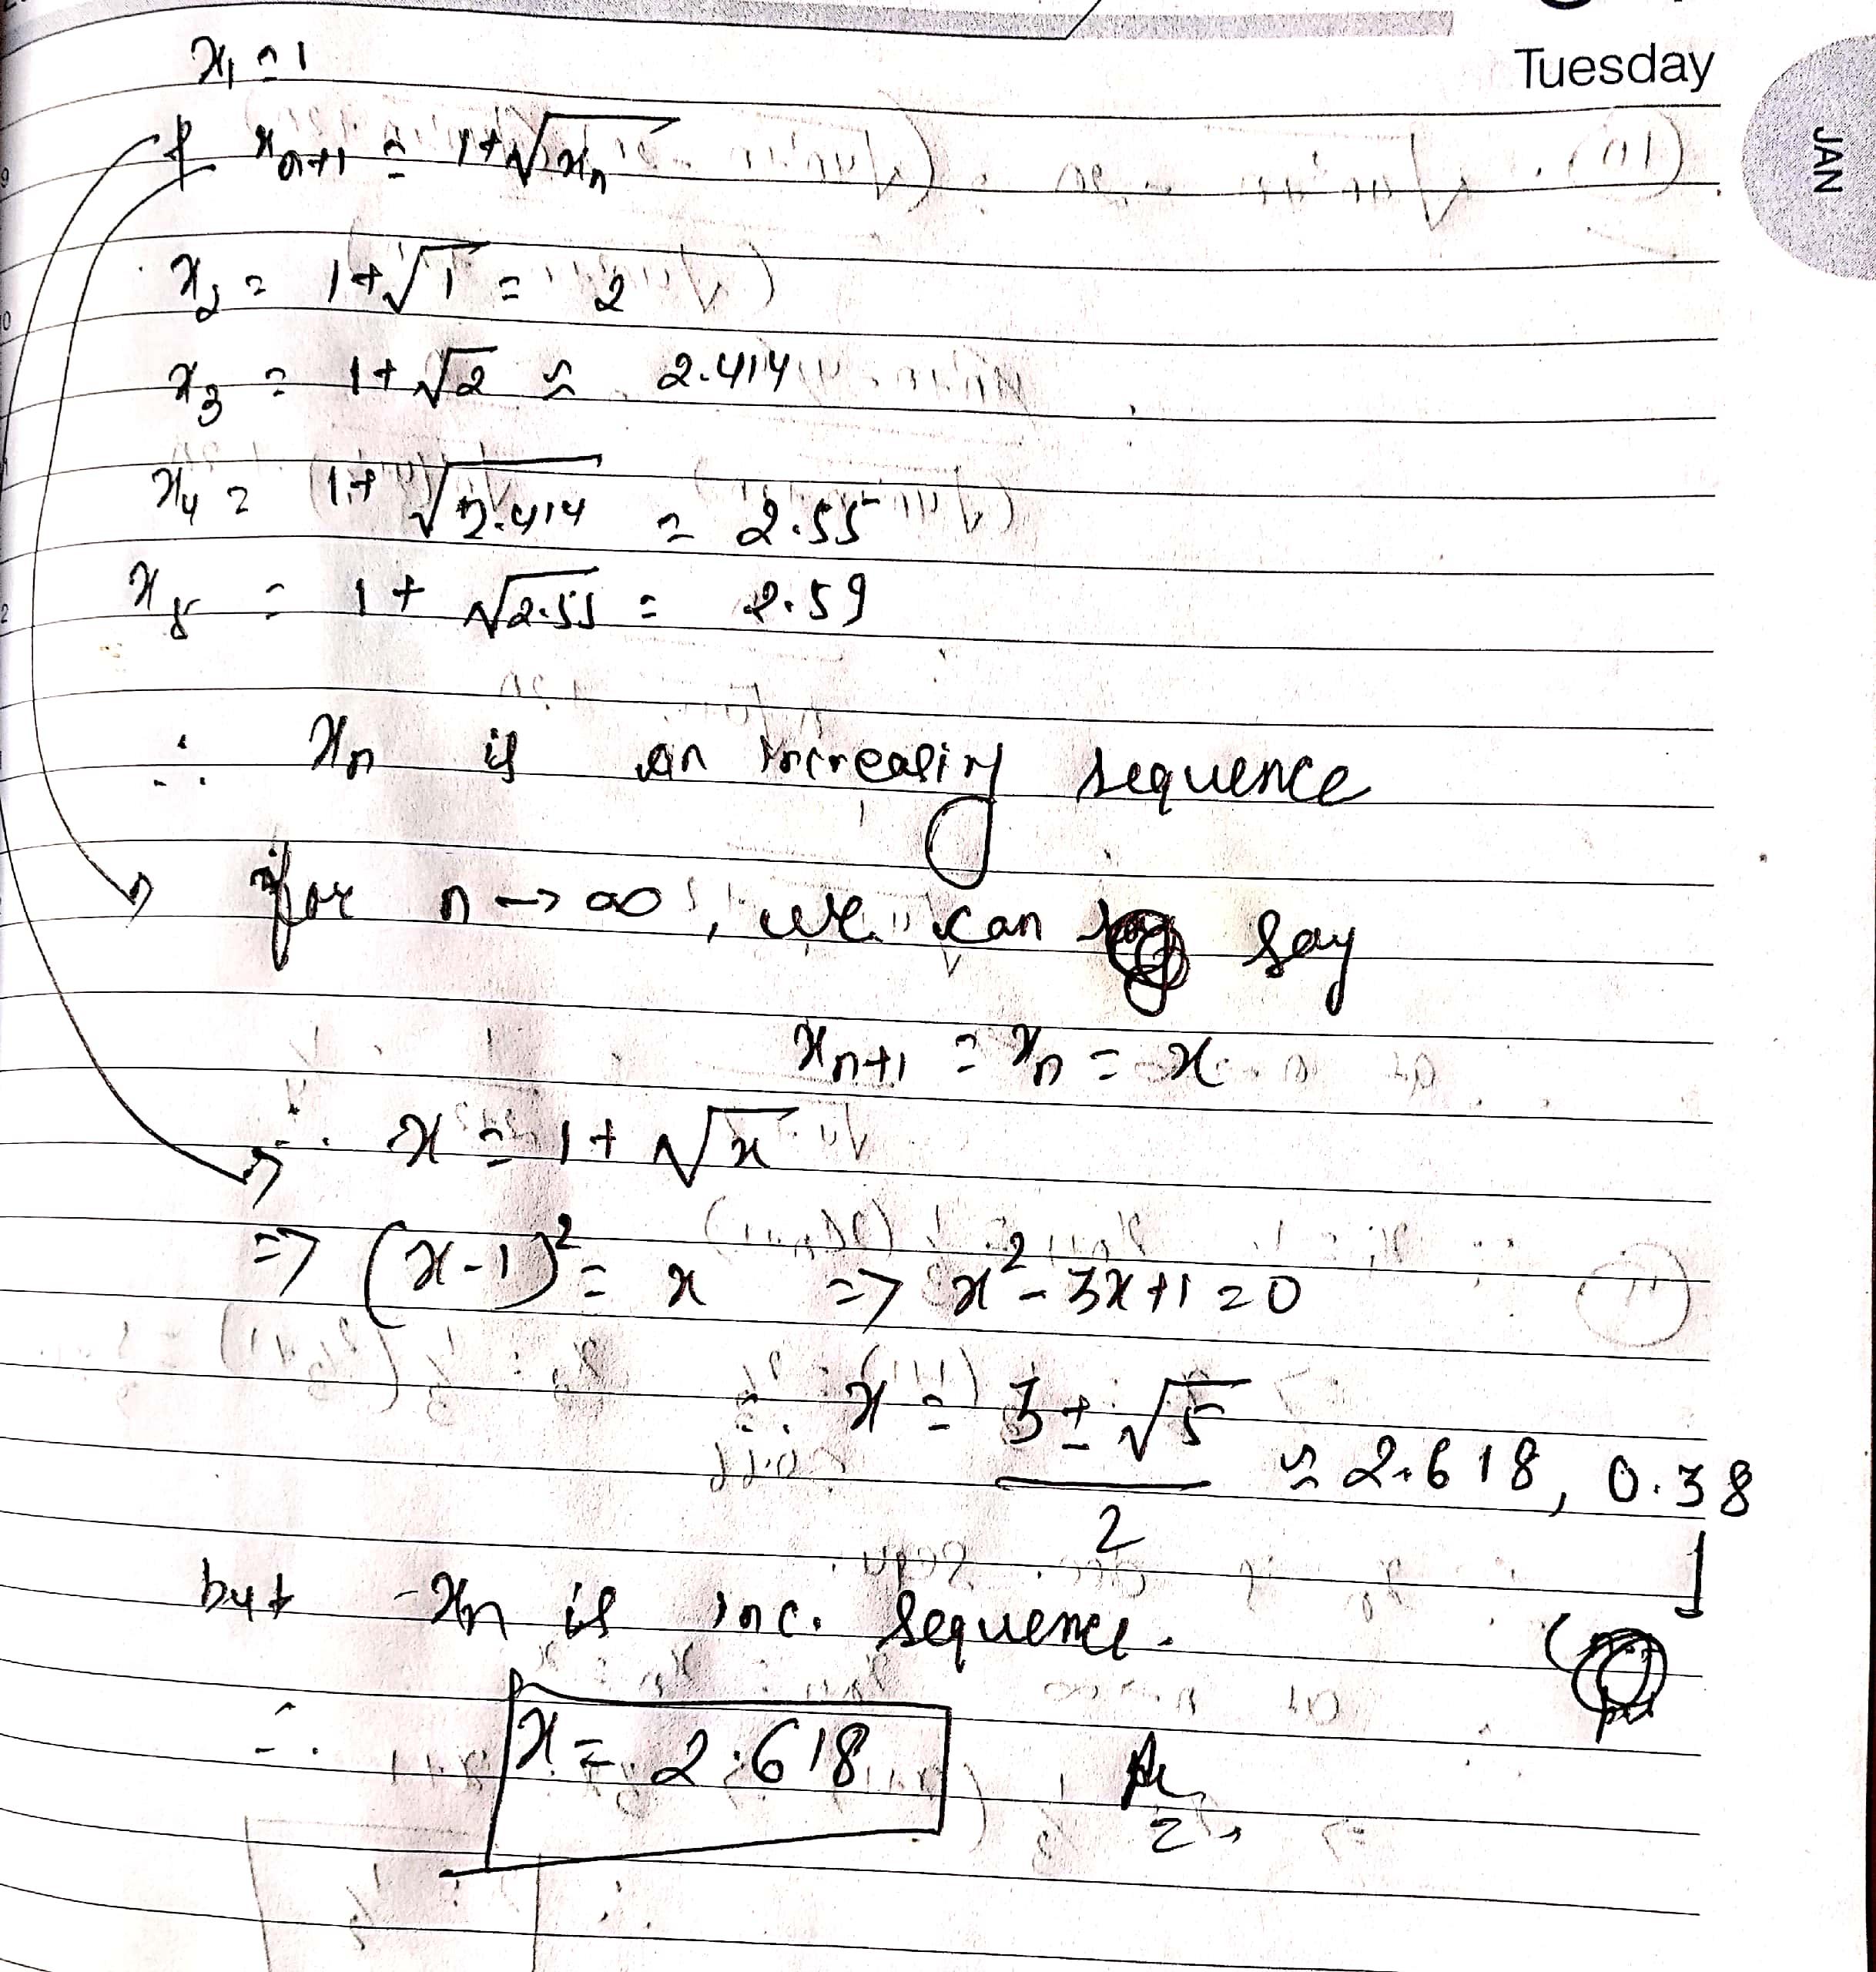 Tuesday
JAN
x₁ = 1
& xₙ₊₁ = 1+√xₙ
x₂ = 1+√1 = 2
x₃ = 1+√2 ≈ 2.414
x₄ = 1+√2.414 = 2.55
x₅ = 1+√2.55 = 2.59
∴ xₙ is an increasing sequence
for n → ∞, we can say
xₙ₊₁ = xₙ = x
∴ x = 1+√x
=> (x-1)² = x => x² - 3x + 1 = 0
∴ x = (3 ± √5)/2 ≈ 2.618, 0.38
but xₙ is inc. sequence.
∴ x = 2.618